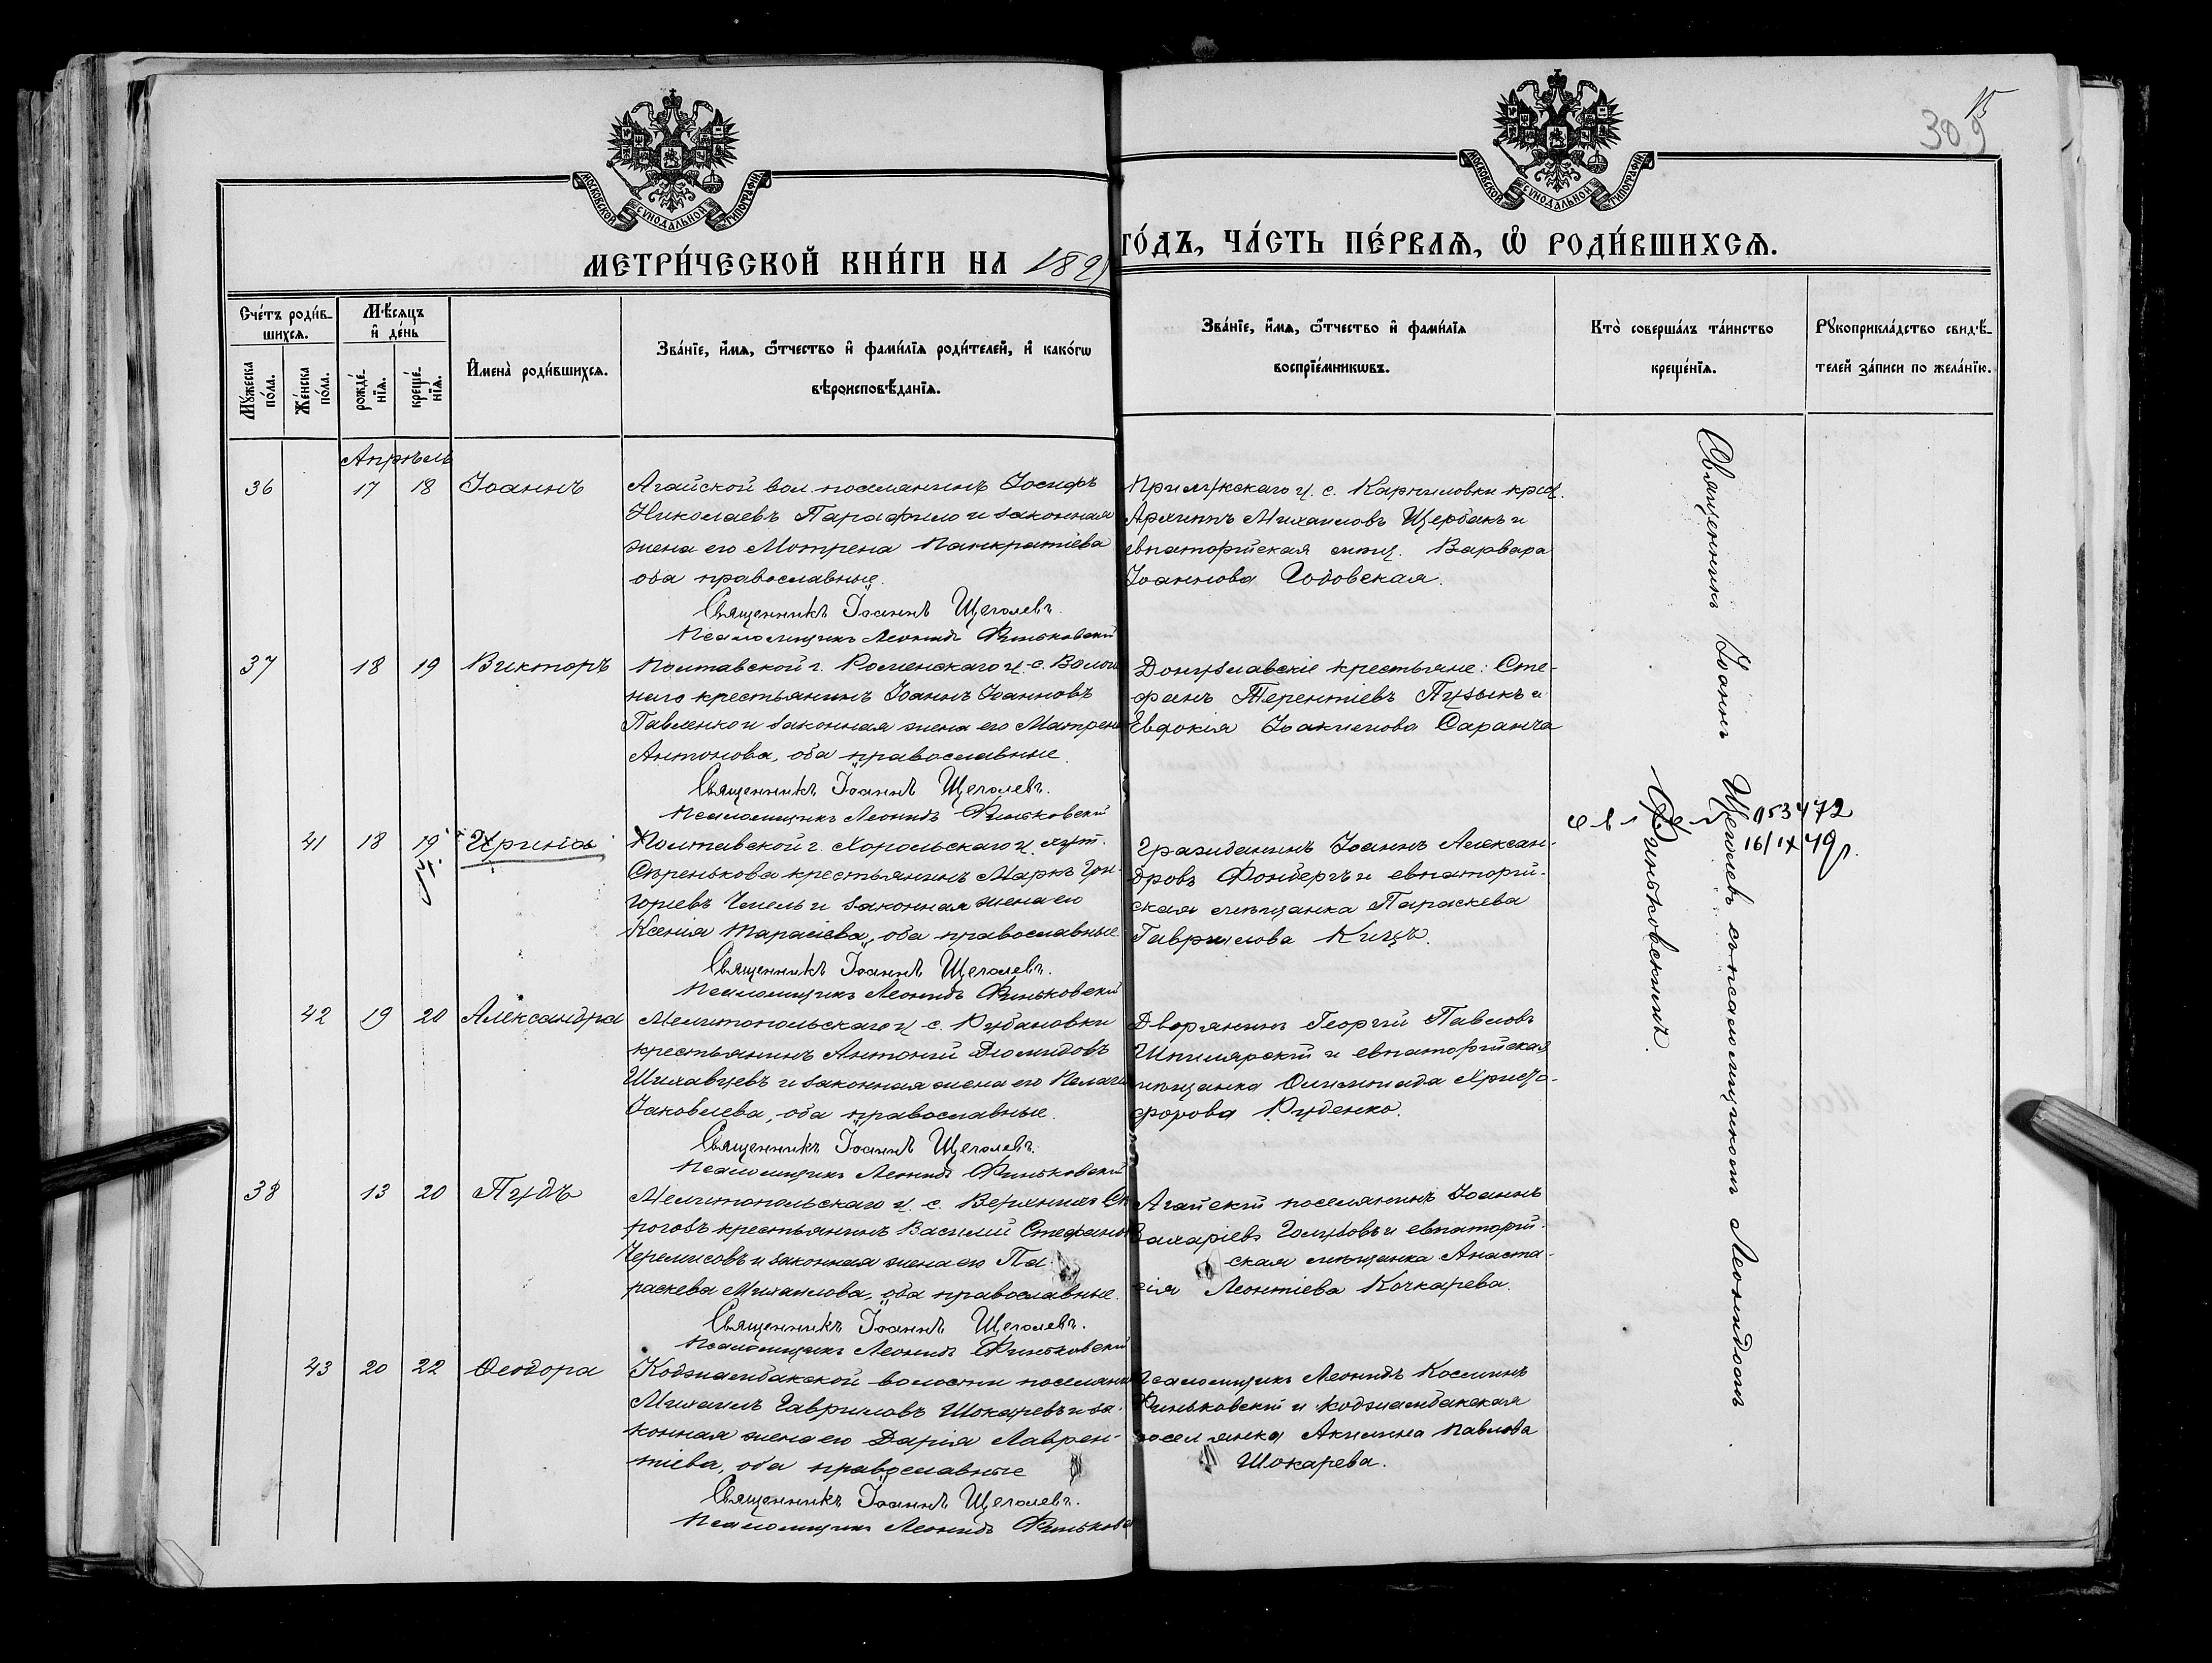 309
15
МОСКОВСКОЙ СѴНОДАЛЬНОЙ ТИПОГРАФІИ
МОСКОВСКОЙ СѴНОДАЛЬНОЙ ТИПОГРАФІИ
МЕТРИ́ЧЕСКОЙ КНИ́ГИ НА 189
ГО́ДЪ, ЧА́СТЬ ПЕ́РВАѦ, Ѡ҆ РОДИ́ВШИХСѦ.
Сче́тъ роди́в-
шихсѧ.
Мꙋ́жеска по́ла.
Же́нска по́ла.
Мѣ́сѧцъ и҆ де́нь
рожде́-нїѧ.
креще́-нїѧ.
И҆мена̀ роди́вшихсѧ.
Зва́нїе, и҆́мѧ, ѻ҆́тчество и҆ фами́лїѧ роди́телей, и҆ како́гѡ
вѣроисповѣ́данїѧ.
Зва́нїе, и҆́мѧ, ѻ҆́тчество и҆ фами́лїѧ
воспрїе́мникѡвъ.
Кто̀ соверша́лъ та́инство
креще́нїѧ.
Рꙋкоприкла́дство свидѣ́-
телей за́писи по жела́нїю.
Апрѣль
36 17 18 Іоаннъ
Агайской вол. поселянинъ Іосифъ
Николаевъ Парафило и законная
жена его Мотрена Панкратіева
оба православные.
Священникъ Іоаннъ Щеголевъ.
Псаломщикъ Леонидъ Финьковскій
Прилукскаго у. с. Карпиловки крест.
Архиппъ Михаиловъ Щербакъ и
евпаторійская мѣщ. Варвара
Іоаннова Годовская.
37 18 19 Викторъ
Полтавской г. Роменскаго у. с. Волош
наго крестьянинъ Іоаннъ Іоанновъ
Павленко и законная жена его Матрена
Антонова, оба православные.
Священникъ Іоаннъ Щеголевъ.
Псаломщикъ Леонидъ Финьковскій
Донузлавскіе крестьяне: Сте-
фанъ Терентіевъ Пузыкъ и
Евдокія Іоакимова Саранча
41 18 19 Ирина
Полтавской г. Хорольскаго у. хут.
Старенькова крестьянинъ Маркъ Гри-
горіевъ Чмель и законная жена его
Ксенія Тарасіева, оба православные.
Священникъ Іоаннъ Щеголевъ.
Псаломщикъ Леонидъ Финьковскій
Гражданинъ Іоаннъ Алексан-
дровъ Фонбергъ и евпаторій-
ская мѣщанка Параскева
Гавриилова Куцъ.
053472
16/IX 49 г.
42 19 20 Александра
Мелитопольскаго у. с. Рубановки
крестьянинъ Антоній Діомидовъ
Шиховцевъ и законная жена его Пелагія
Іаковлева, оба православные.
Священникъ Іоаннъ Щеголевъ.
Псаломщикъ Леонидъ Финьковскій
Дворянинъ Георгій Павловъ
Шпилярскій и евпаторійская
мѣщанка Олимпіада Христо-
форова Руденко.
38 13 20 Пудъ
Мелитопольскаго у. с. Верхнихъ Сѣ
рогозъ крестьянинъ Василій Стефановъ
Черемисовъ и законная жена его Па-
раскева Михаилова, оба православные.
Священникъ Іоаннъ Щеголевъ.
Псаломщикъ Леонидъ Финьковскій
Агайскій поселянинъ Іоаннъ
Захаріевъ Голубовъ и евпаторій-
ская мѣщанка Анаста-
сія Леонтіева Кочкарева.
43 20 22 Ѳеодора
Коджамбакской волости поселянинъ
Михаилъ Гавриловъ Шокаревъ и за-
конная жена его Дарія Лаврен-
тіева, оба православные
Священникъ Іоаннъ Щеголевъ.
Псаломщикъ Леонидъ Финьковс
Псаломщикъ Леонидъ Косминъ
Финьковскій и коджамбакская
поселянка Акилина Павлова
Шокарева.
Священникъ Іоаннъ Щеголевъ съ псаломщикомъ Леонидомъ
Финьковскимъ.